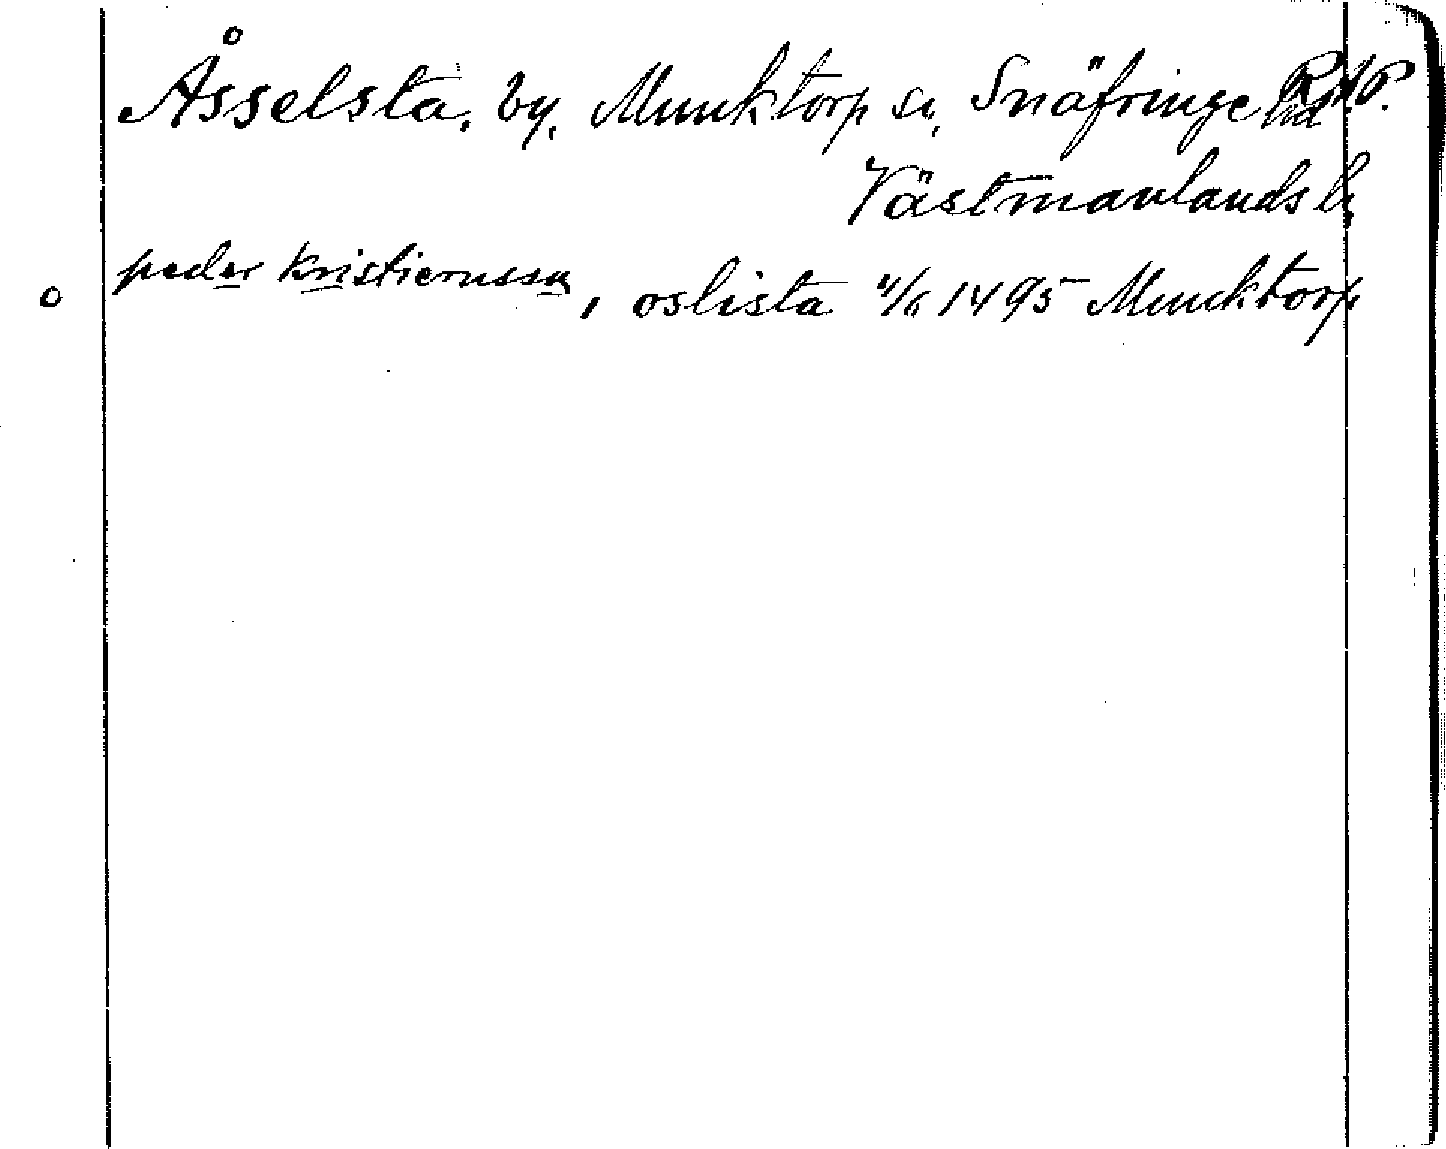 Åsselsta, by, Munktorp sn, Snäfringe hd RAP.
Västmanlands l.
peder kristiernsson, i oslista 4/6 1495 Munktorp